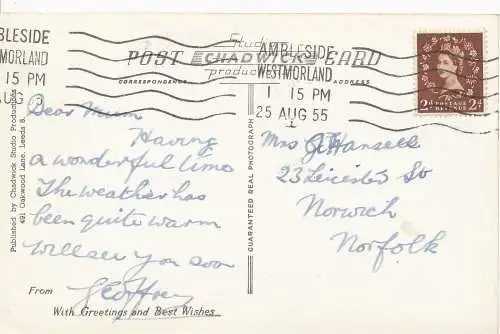 AMBLESIDE
WESTMORLAND
1 15 PM
25 AUG 55
MBLESIDE
MORLAND
15 PM
AUG
Studio
POST CHADWICK CARD
productions
CORRESPONDENCE
ADDRESS
2d POSTAGE REVENUE 2d
Dear Mum
Having
a wonderful time
The weather has
been quite warm
will see you soon
From Geoffrey
With Greetings and Best Wishes
Published by Chadwick Studio Productions
491 Oakwood Lane, Leeds 8.
GUARANTEED REAL PHOTOGRAPH
Mrs G Hansell
23 Leicester St
Norwich
Norfolk